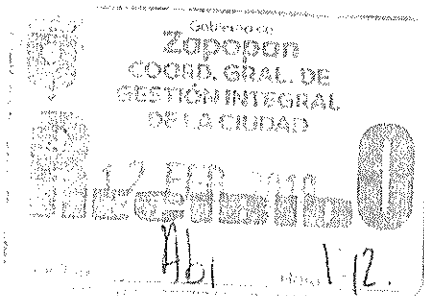 Gobierno de
Zapopan
COORD. GRAL. DE
GESTIÓN INTEGRAL
DE LA CIUDAD
12 FEB 2018
Recibido
Abi
Hora 1:12.